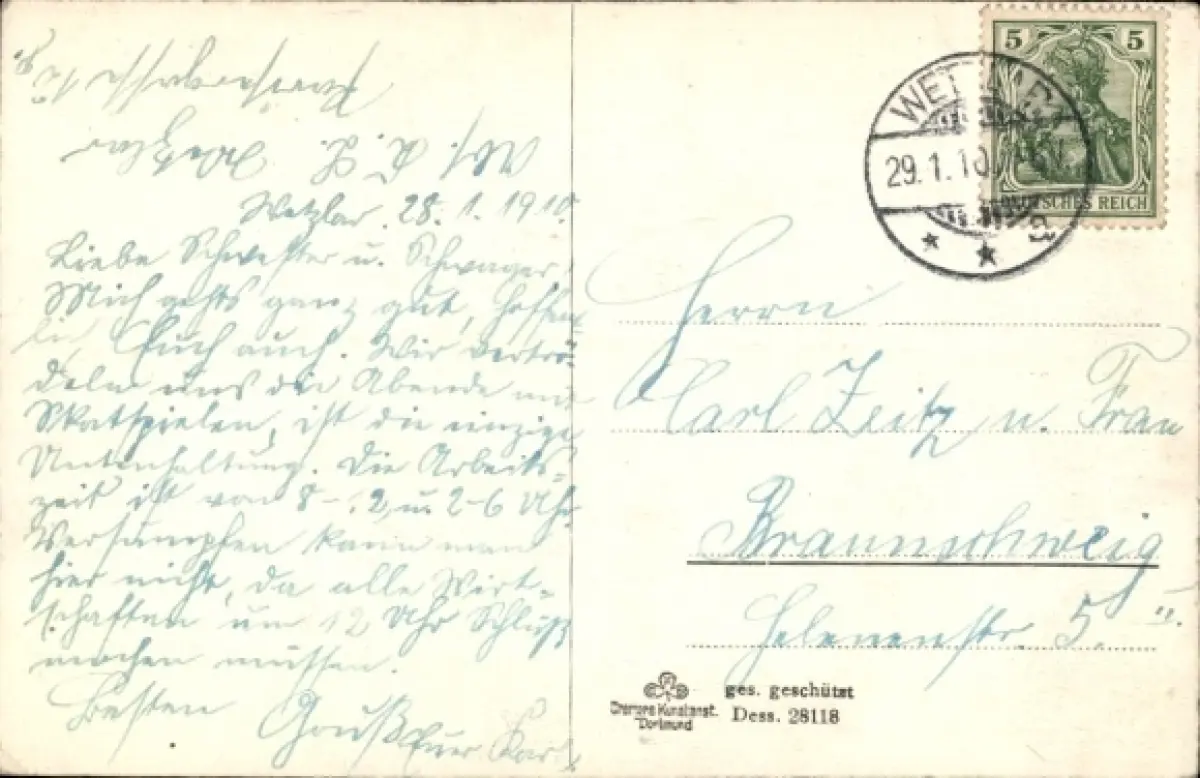 Wetzlar. 28.1.1910.
Liebe Schwester u. Schwager!
Mich gehts ganz gut, hoffent
li, Euch auch. Wir verträ
deln uns die Abende mit
Skatspielen, ist die einzige
Unterhaltung. Die Arbeits-
zeit ist von 8-12 u. 2-6 Uhr
Versumpfen kann man
hier nicht, da alle Wirt-
schaften um 12 Uhr Schluß
machen müssen.
Besten Gruß Euer Karl
Abs. K. Z. Wetzlar
5 5
DEUTSCHES REICH
29.1.10
Herrn
Carl Zeitz u. Frau
Braunschweig
Helenenstr. 5. II.
ges. geschützt
Dess. 28118
Kunstanst.
Dortmund